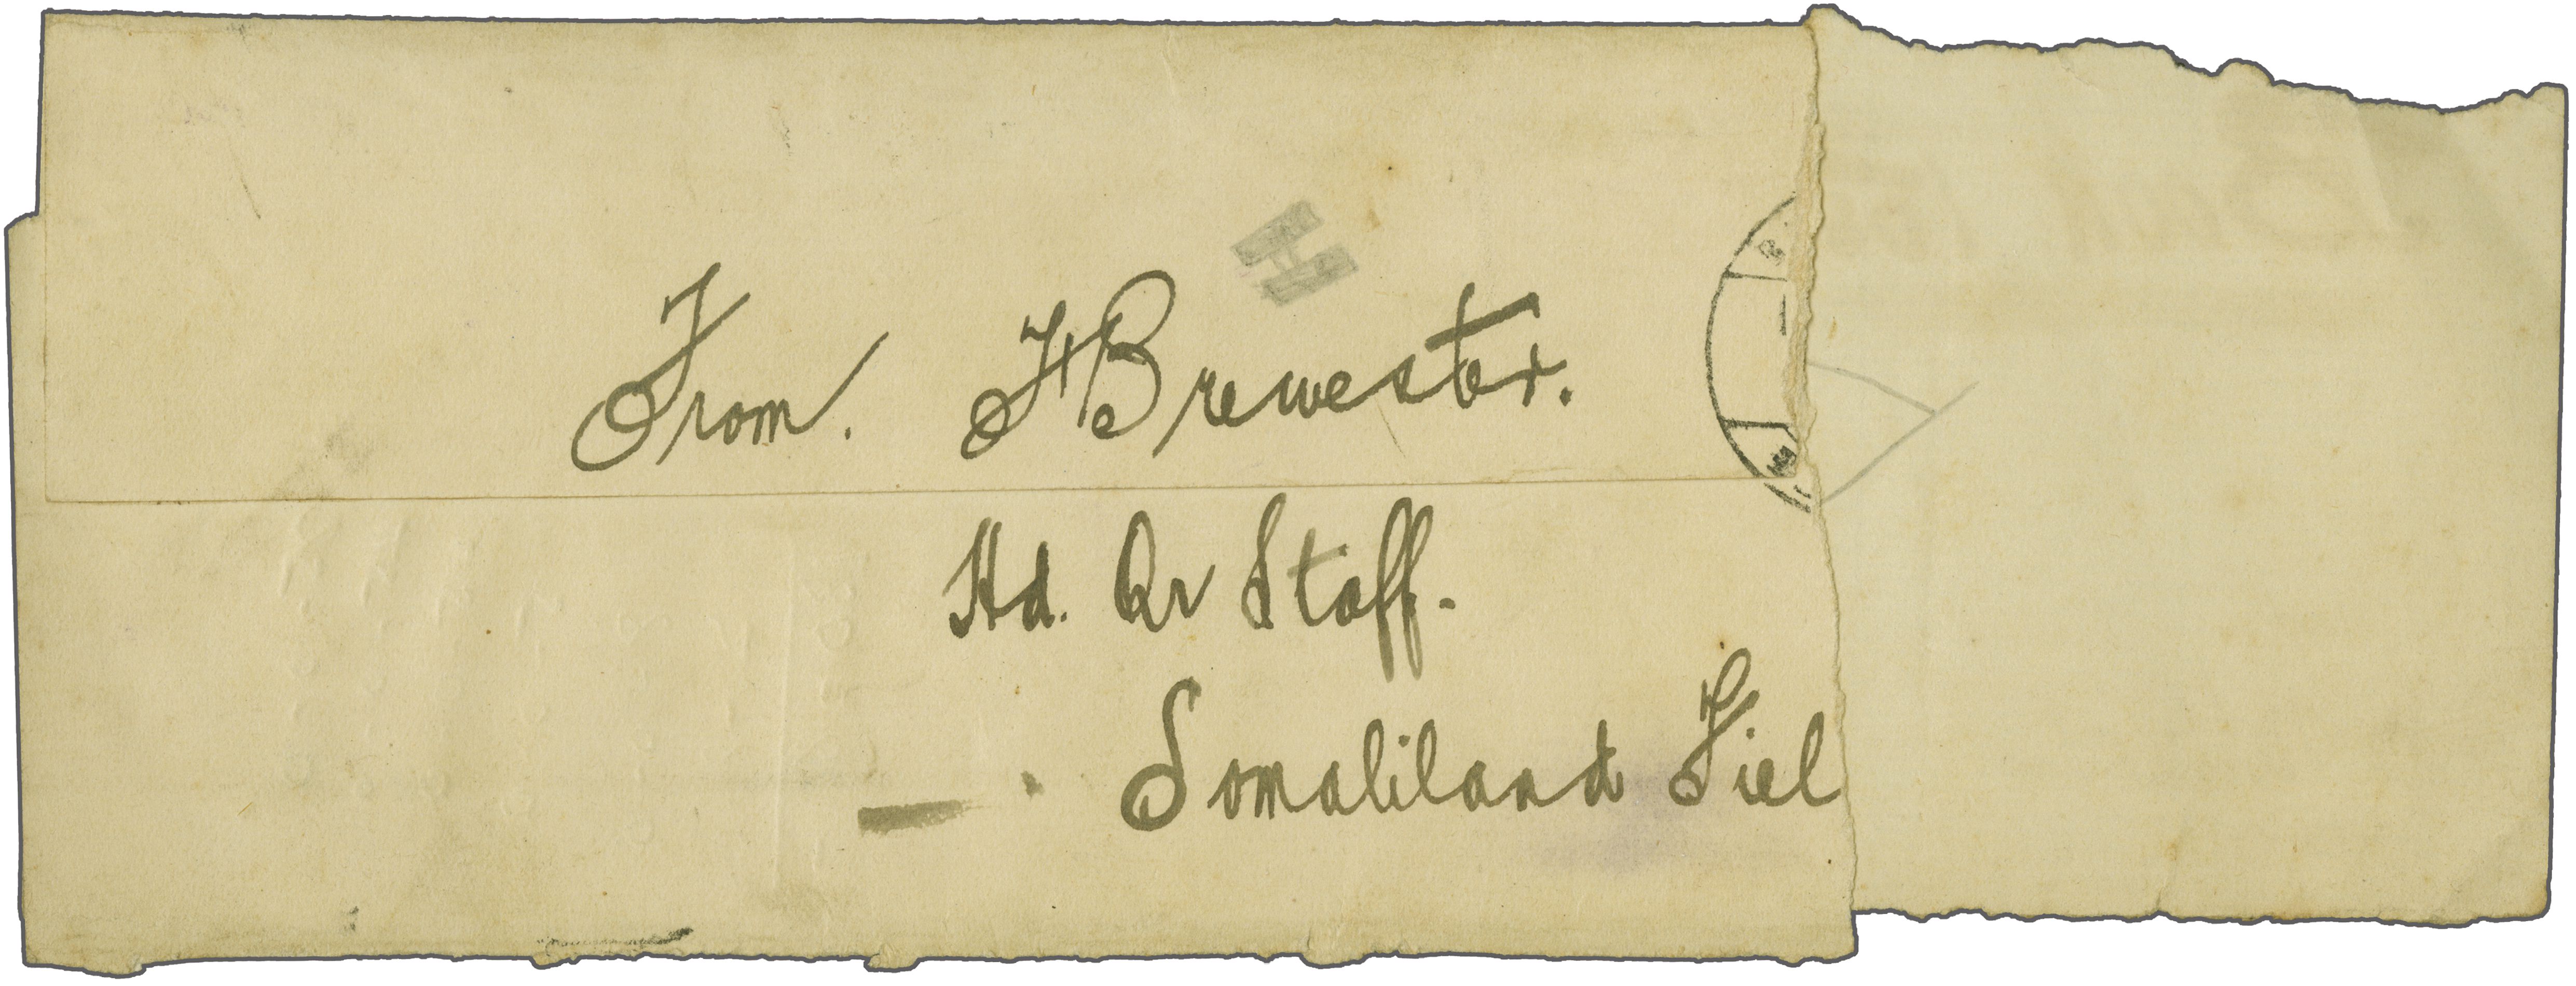 From. H Brewester.
Hd. Qr Staff.
Somaliland Fiel